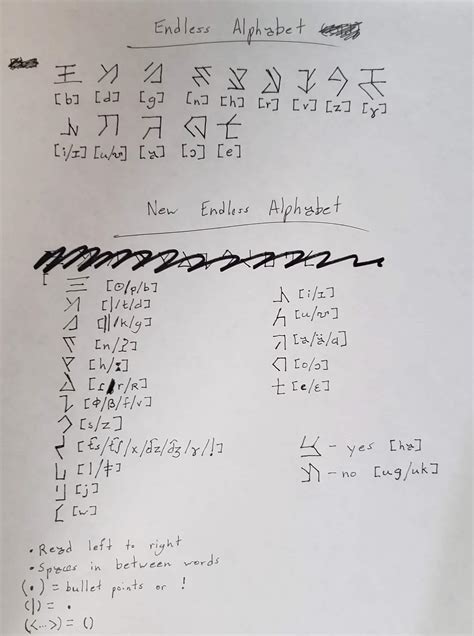 Endless Alphabet
[b] [d] [g] [n] [h] [r] [v] [z] [ɣ]
[i/ɪ] [u/ʊ] [ɔ] [e]
New Endless Alphabet
[ʘ/p/b]
[ǀ/t/d]
[ǁ/k/g]
[h/ɪ]
[ɾ/r/ʀ]
[ɸ/β/f/v]
[s/z]
[t͡s/t͡ʃ/x/d͡z/d͡ʒ/ɣ/!]
[l/ǂ]
[j]
[w]
[i/ɪ]
[u/ʊ]
[o/ɔ]
[e/ɛ]
- yes [ha]
- no [ug/uk]
• Read left to right
• Spaces in between words
(•) = bullet points or !
(|) = .
(<...>) = ()